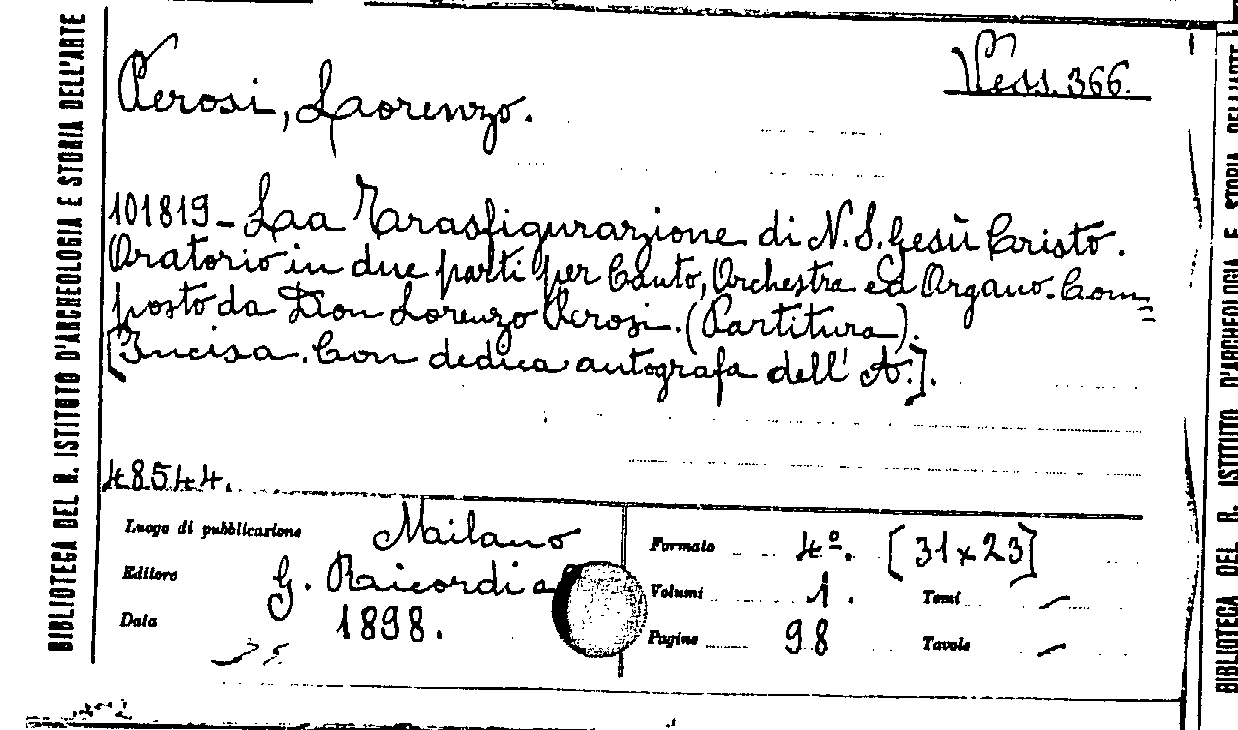 BIBLIOTECA DEL R. ISTITUTO D'ARCHEOLOGIA E STORIA DELL'ARTE
Perosi, Lorenzo.
Vess. 366.
101819 - La Trasfigurazione di N. S. Gesù Cristo.
Oratorio in due parti per Canto, Orchestra ed Organo. Com=
posto da Don Lorenzo Perosi. (Partitura).
[Incisa. Con dedica autografa dell'A.].
48544.
Luogo di pubblicazione Milano
Editore G. Ricordi
Data 1898.
Formato 4º. [31 x 23]
Volumi 1. Tomi –
Pagine 98 Tavole –
BIBLIOTECA DEL R. ISTITUTO D'ARCHEOLOGIA E STORIA DELL'ARTE